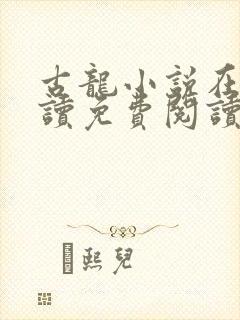 古龍小說在
讀免費閱讀
熙兒